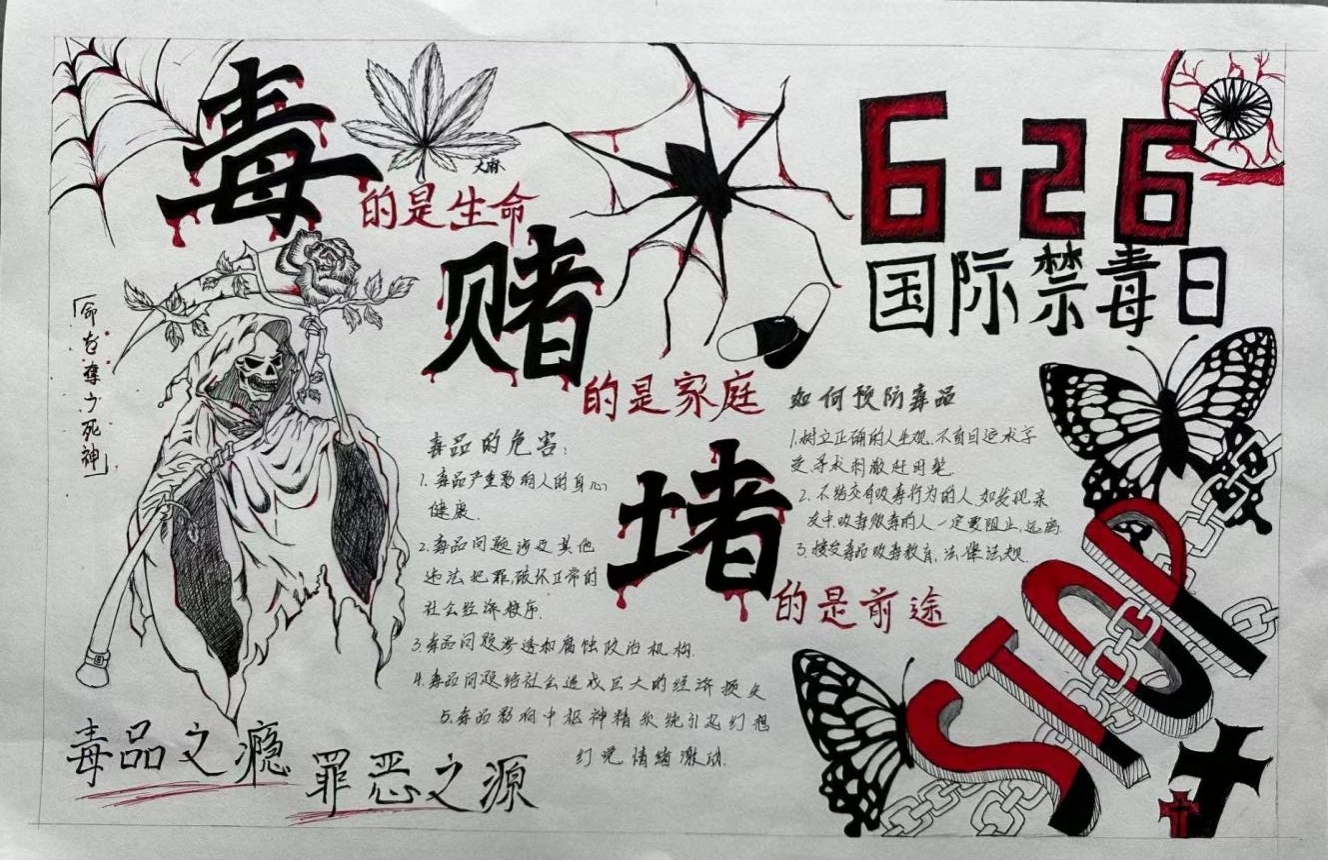 毒
大麻
的是生命
赌
的是家庭
堵
的是前途
6·26
国际禁毒日
「命与毒少死神」
毒品的危害:
1.毒品严重影响人的身心
健康.
2.毒品问题涉及其他
违法犯罪,破坏正常的
社会经济秩序.
3.毒品问题渗透和腐蚀政治机构.
4.毒品问题给社会造成巨大的经济损失
5.毒品影响中枢神精系统引起幻想
幻觉,情绪激动.
如何预防毒品
1.树立正确的人生观.不盲目追求享
受寻求刺激赶时髦
2.不结交有吸毒行为的人,如发现亲
友中吸毒贩毒的人一定要阻止,远离.
3.接受毒品吸毒教育,法律法规.
毒品之瘾
罪恶之源
STOP